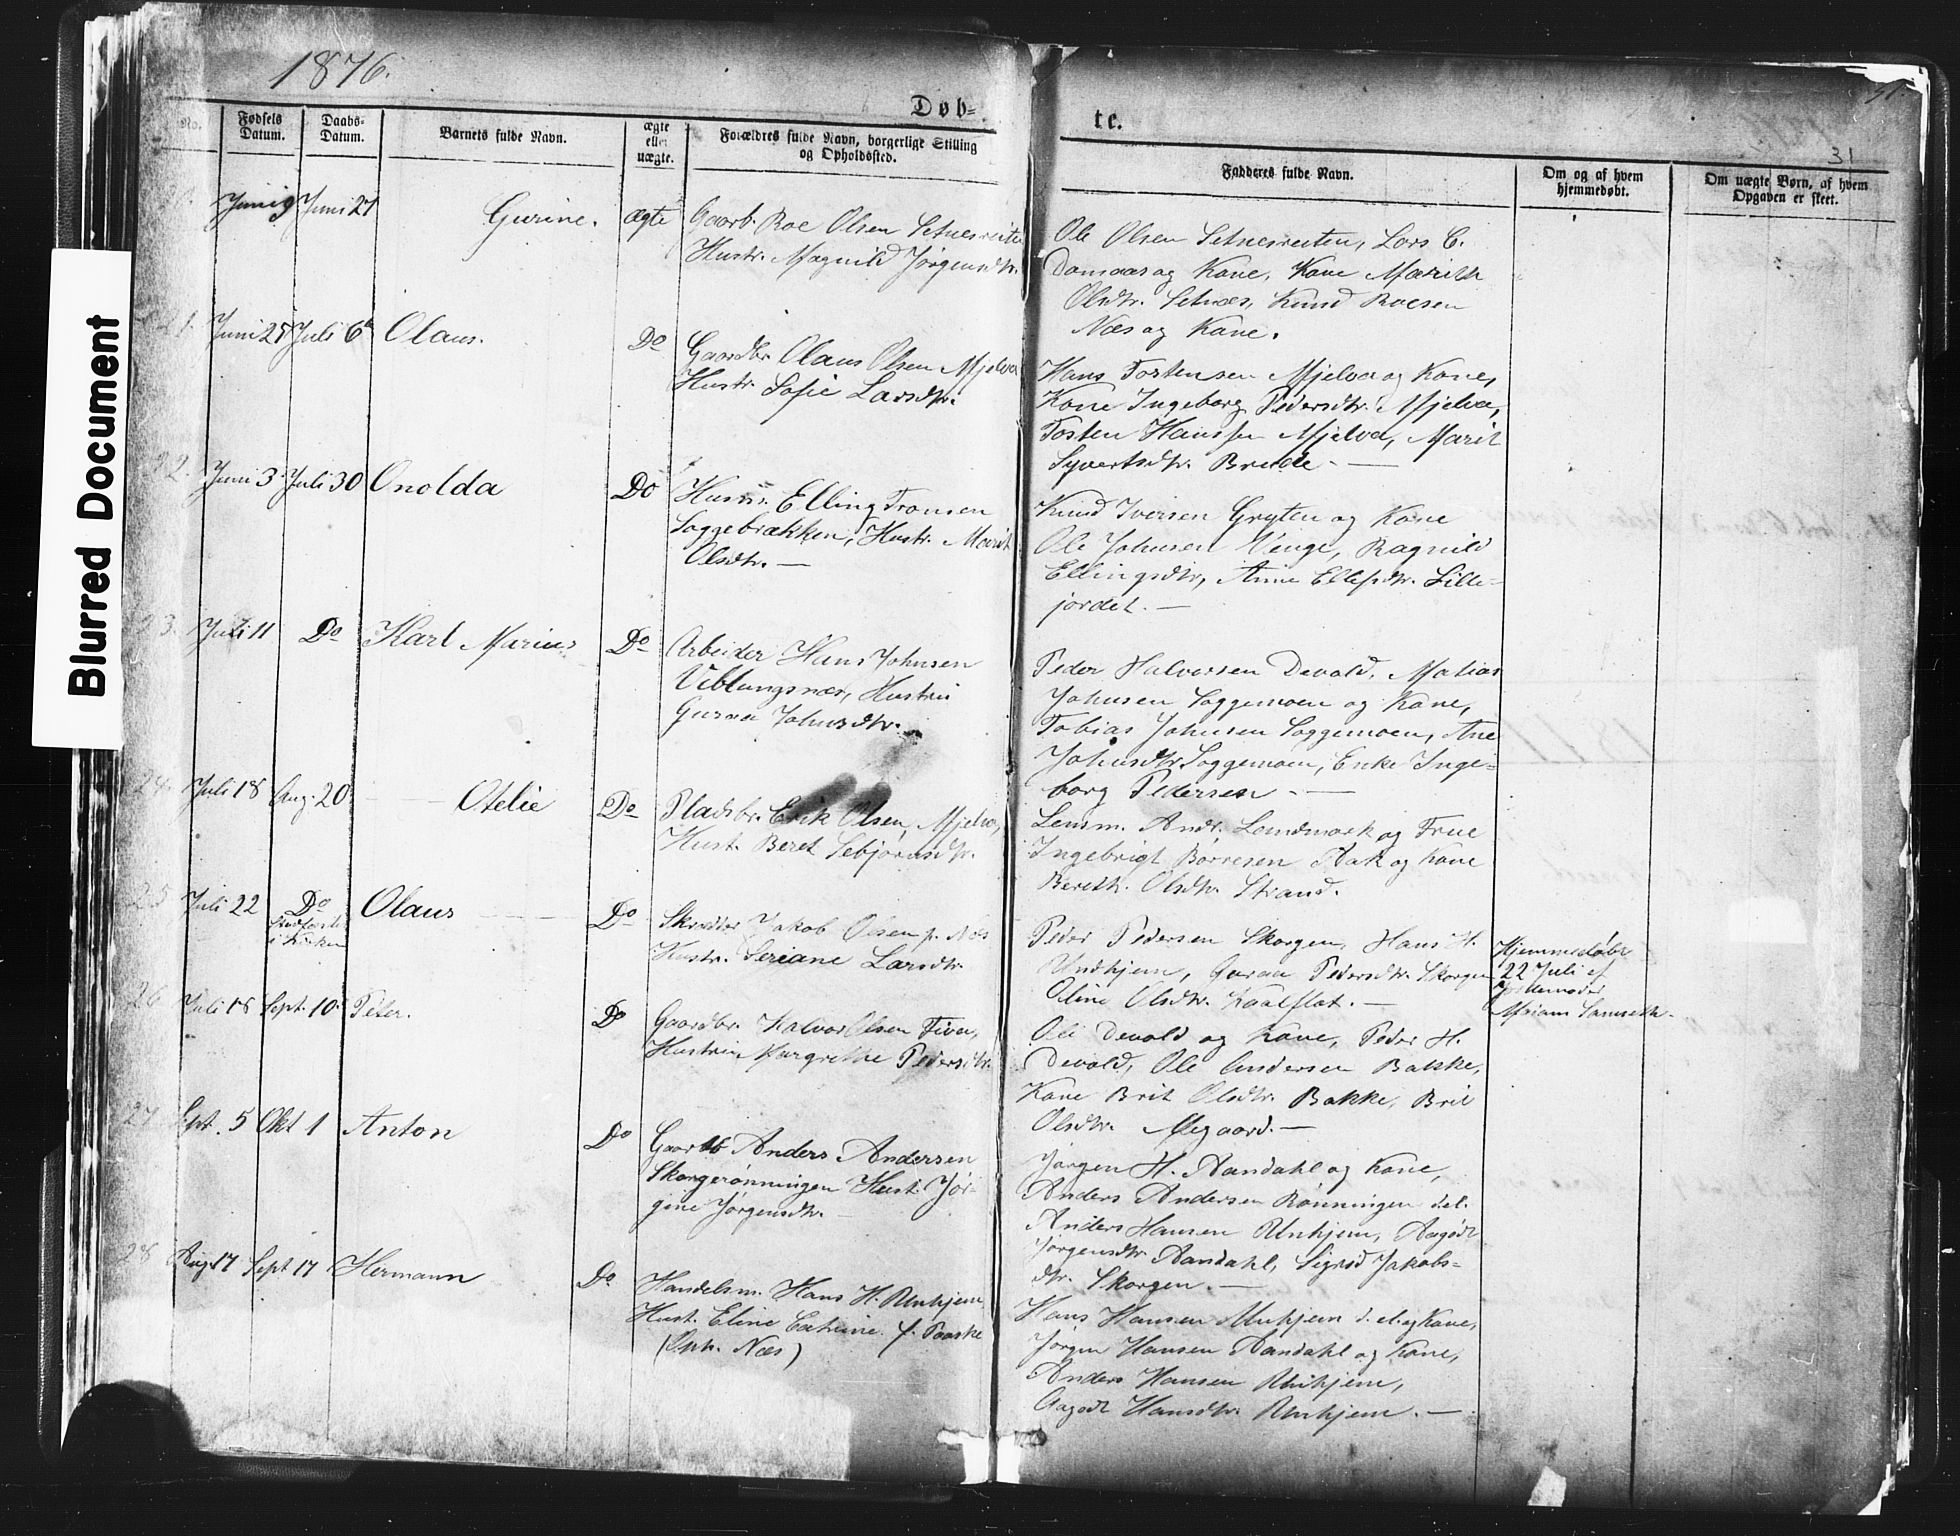 1876.
Døb=
te.
31
No.
Fødsels Datum.
Daabs- Datum.
Barnets fulde Navn.
ægte eller uægte.
Forældres fulde Navn, borgerlige Stilling og Opholdssted.
Fadderes fulde Navn.
Om og af hvem hjemmedøbt.
Om uægte Børn, af hvem Opgaven er skeet.
Blurred Document
Juni 9 Juni 27 Gurine. ægte
Gaarb. Roe Olsen Setnesreiten
Hustr. Magnild Jørgensdtr.
Ole Olsen Setnesreiten, Lars C.
Damaas og Kone, Kone Marith
Olsdtr. Setnæs, Knud Roesen
Næs og Kone.
21. Juni 28 Juli 6 Olaus. Do
Gaardbr. Olaus Olsen Mjelva
Hustr. Sofie Larsdtr.
Hans Tostensen Mjelva og Kone,
Kone Ingeborg Pedersdtr. Mjelva,
Tosten Hanssen Mjelva, Marit
Syvertsdtr. Brude. —
22. Juni 3 Juli 30 Onolda Do
Husm. Elling Tronsen
Soggebrækken, Hustr. Marit
Olsdtr. —
Knud Iversen Gryten og Kone
Ole Johnsen Venge, Ragnild
Ellingsdtr, Anne Ellefsdtr. Lille-
jordet. —
23. Juli 11 Do Karl Marius Do
Arbeider Hans Johnsen
Veblungsnæs, Hustru
Guraa Johnsdtr.
Peder Halvorsen Devold, Matias
Johnsen Soggemoen og Kone,
Tobias Johnsen Soggemoen, Ane
Johnsdtr. Soggemoen, Enke Inge-
borg Pedersen. —
24. Juli 18 Aug. 20 Otelie Do
Pladsbr. Erik Olsen, Mjelva,
Hust. Beret Sebjørnsdtr.
Lensm. Andr. Landmark og Frue
Ingebrigt Børresen Aak og Kone
Bereth. Olsdtr. Strand.
25 Juli 22 Do Olaus Do
Stadfæstet
i Kirken
Skrædder Jakob Olsen p. Næs
Hustr. Seriane Larsdtr.
Peder Pedersen Skorgen, Hans H.
Unhjem, Guraa Pedersdtr. Skorgen
Oline Olsdtr. Kaalflot. —
Hjemmedøbt
22 Juli af
Miriam Samseth.
26 Juli 18 Sept. 10. Peter. Do
Gaardbr. Halvor Olsen Fiva,
Hustru Margrethe Pedersdtr.
Ole Devold og Kone, Peder H.
Devold, Ole Andersen Bakke,
Kone Brit Olsdtr. Bakke, Brit
Olsdtr. Øegaard. —
27 Sept. 5 Okt 1 Anton Do
Gaarb Anders Andersen
Skorgerønningen Hust. Jør-
gine Jørgensdtr.
Jørgen H. Aandahl og Kone,
Anders Andersen Rønningen d. el.
Anders Hansen Unhjem, Aagodt
Jørgensdtr. Aandahl, Sigrid Jakobs-
dtr. Skorgen. —
28 Aug. 17 Sept 17 Hermann Do
Handelsm. Hans H. Unhjem
Hust. Eline Catrine f. Paaske
(Oph. Næs)
Hans Hansen Unhjem d. el. og Kone,
Jørgen Hansen Aandahl og Kone,
Anders Hansen Unhjem,
Aagodt Hansdtr. Unhjem. —